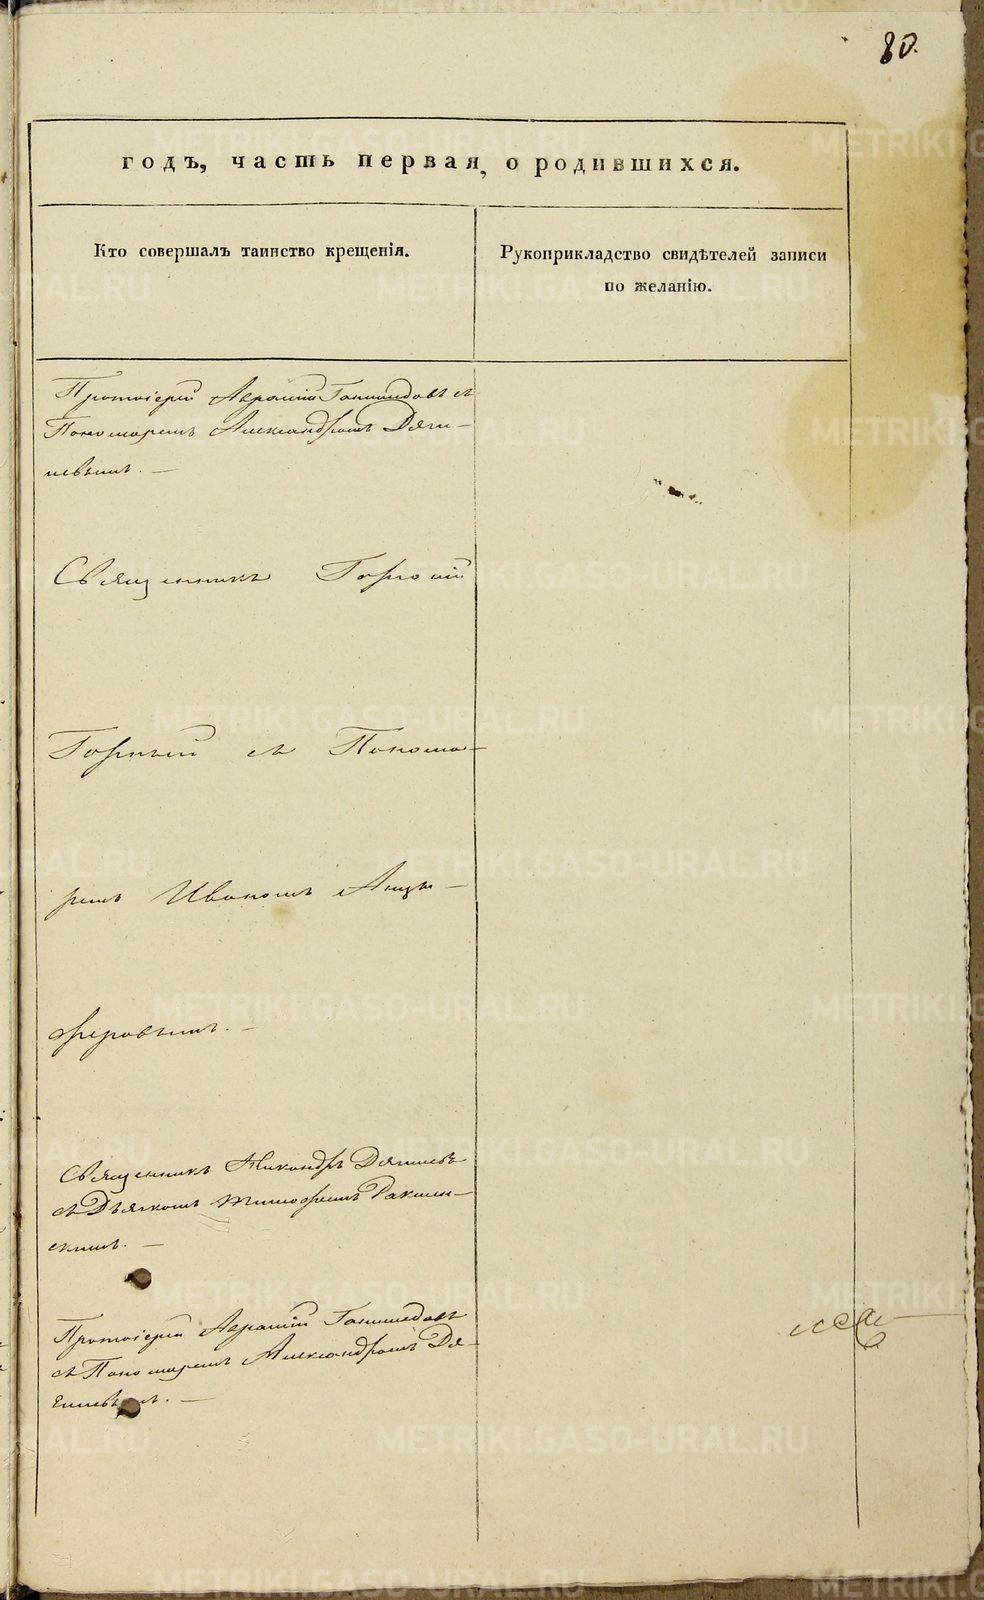 80.
годъ, часть первая, о родившихся.
Кто совершалъ таинство крещенія.
Рукоприкладство свидѣтелей записи
по желанію.
Протоіерей
Пономаремъ Александромъ Дяги-
левымъ. —
Священникъ Георгій
съ Понома-
ремъ Иваномъ Анцы-
феровымъ. —
Священникъ Никандръ Дягилевъ
съ Дьячкомъ Тимофеемъ
скимъ. —
Протоіерей
съ Пономаремъ Александромъ Дя-
METRIKI.GASO-URAL.RU